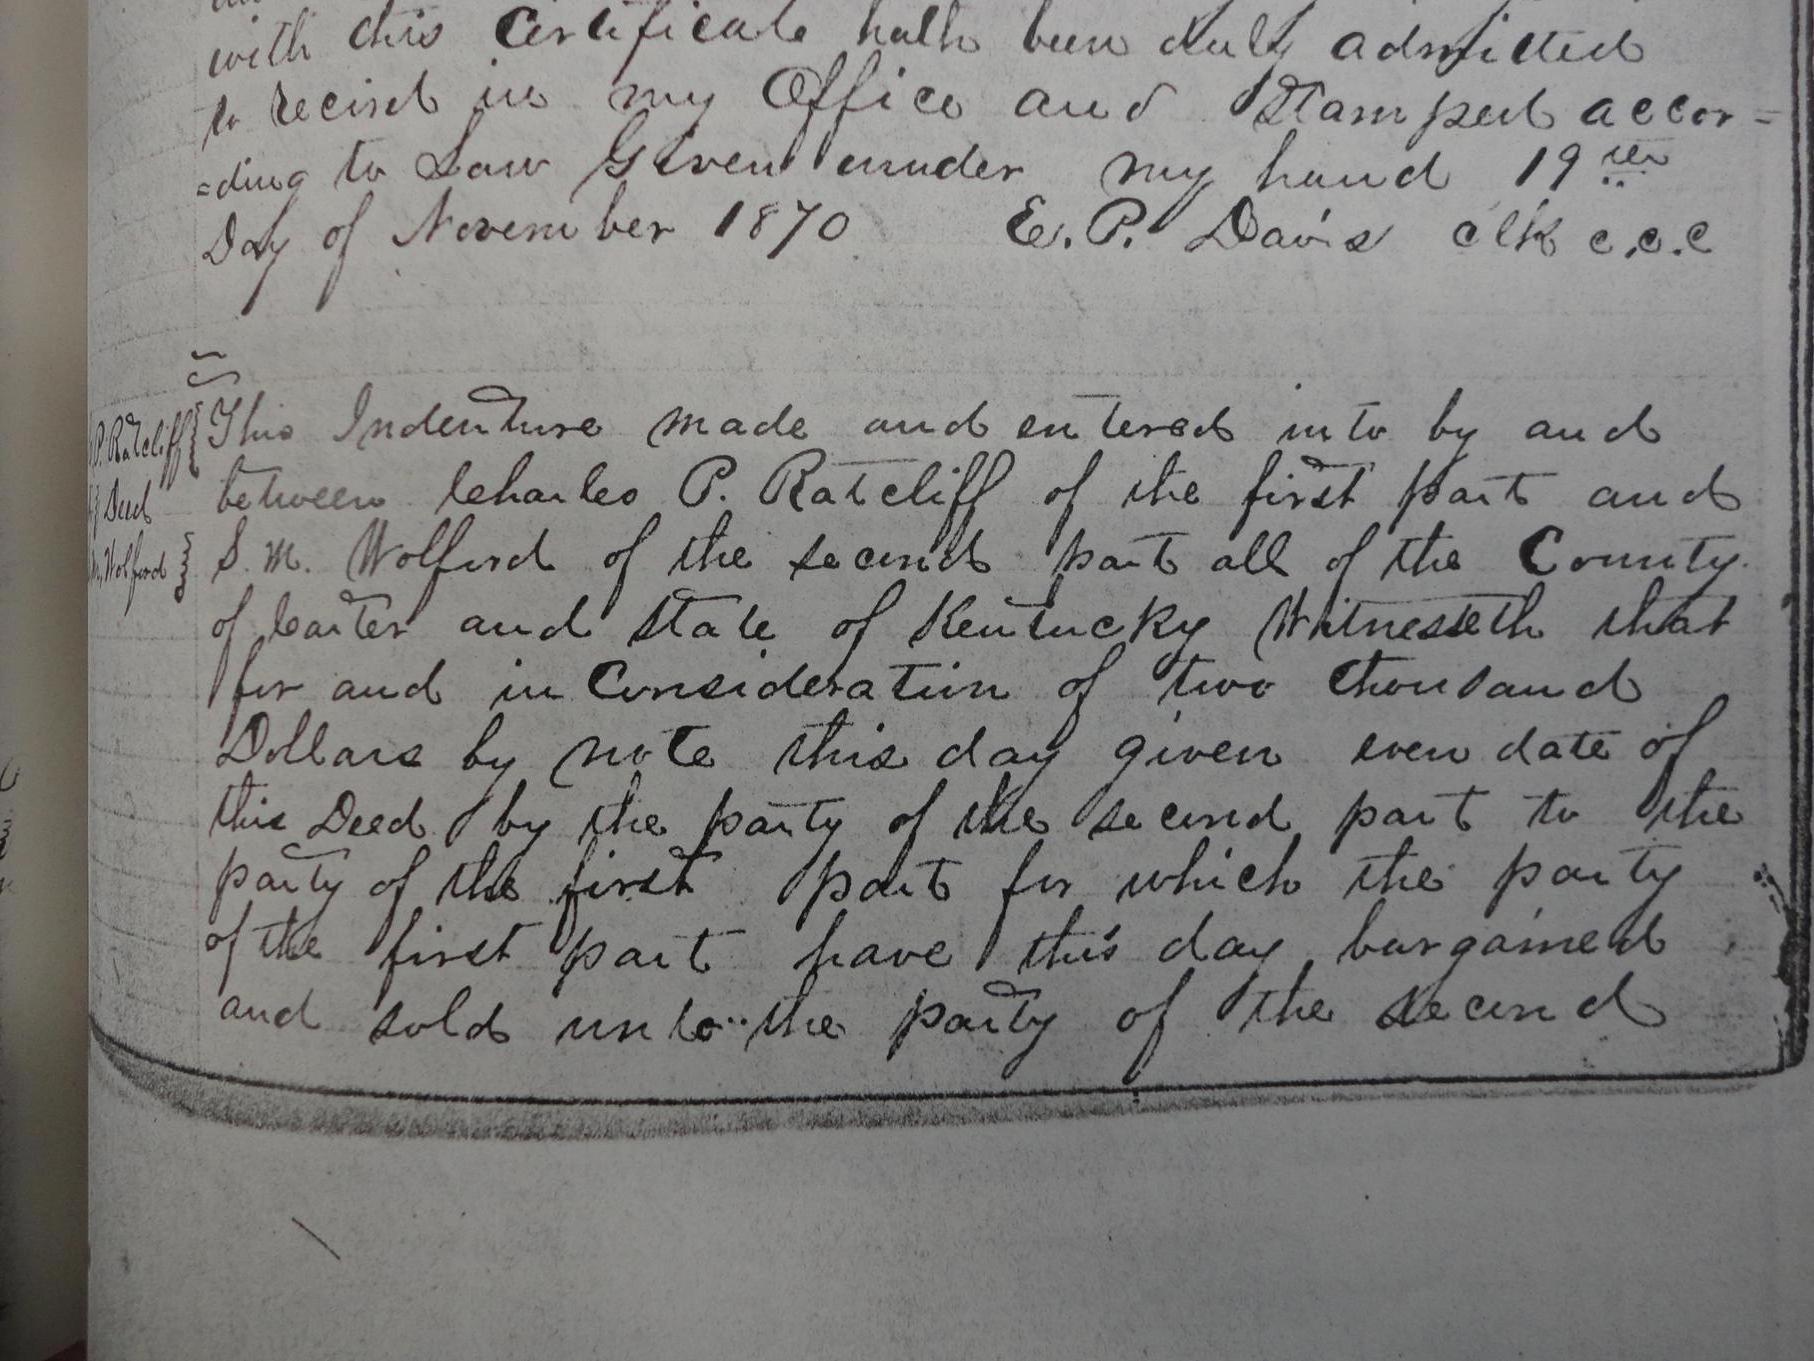 with this Certificate hath been duly admitted
to record in my Office and Stamped accor=
=ding to Law Given under my hand 19
Day of November 1870 E. P. Davis clk c.c.c
P. Ratcliff
Deed
Wolford
This Indenture made and entered into by and
between Charles P. Ratcliff of the first part and
S. M. Wolford of the second part all of the County
of Carter and State of Kentucky Witnesseth that
for and in Consideration of two thousand
Dollars by note this day given even date of
this Deed by the party of the second part to the
party of the first part for which the party
of the first part have this day bargained
and sold unto the party of the second